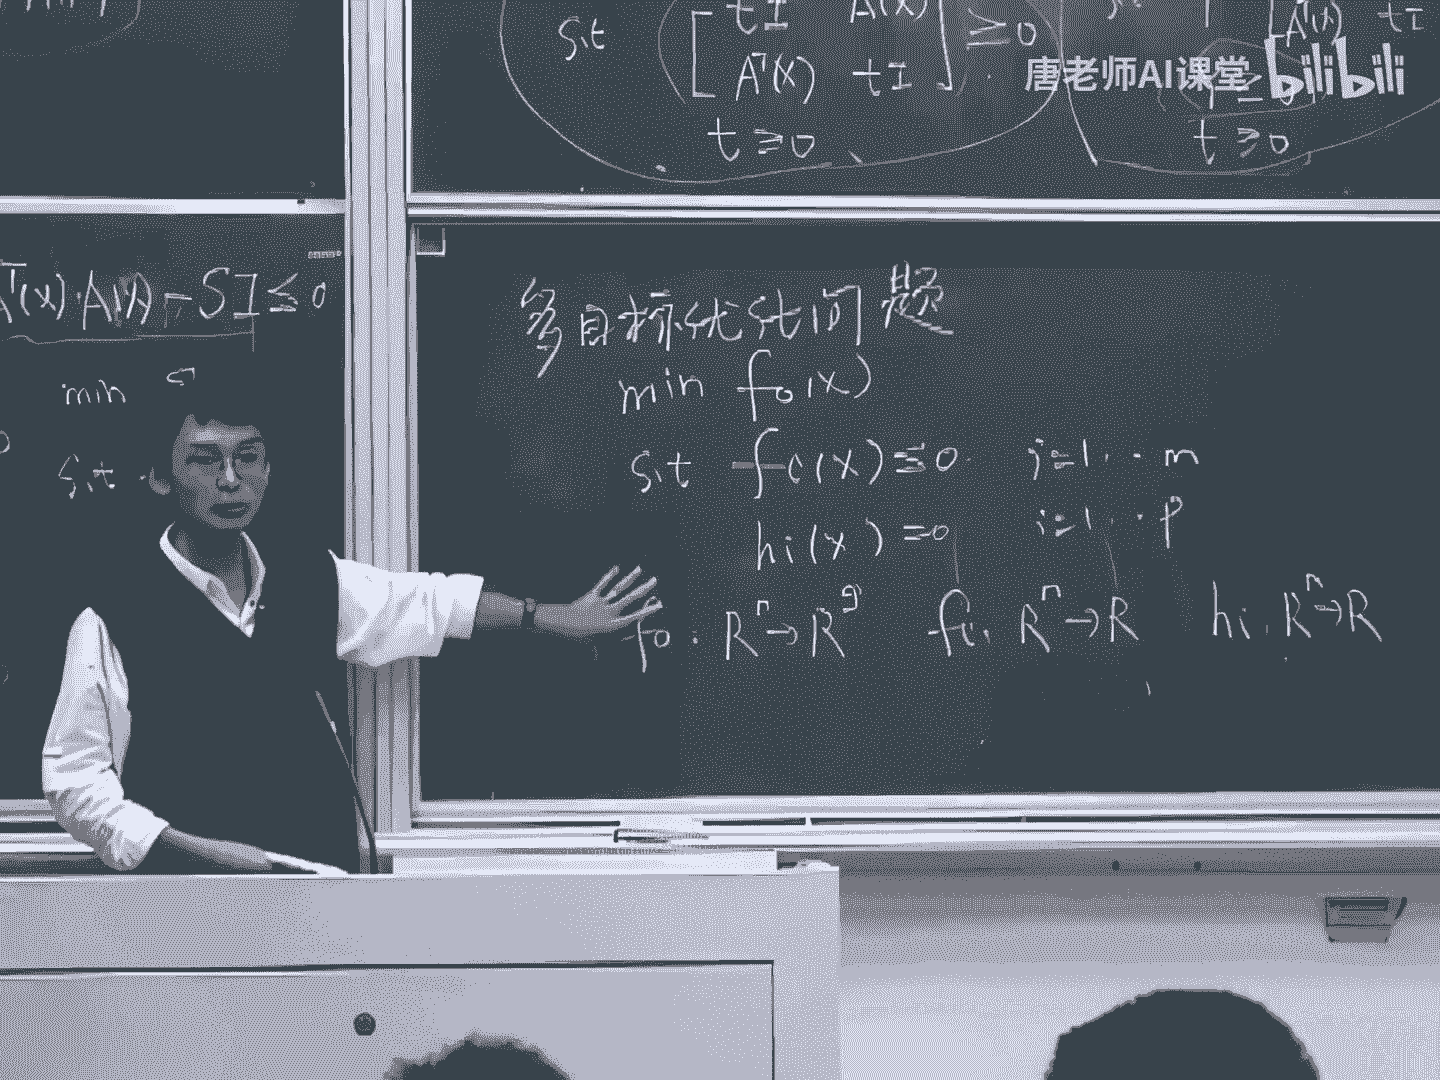 s.t [tI A(x)
Aᵀ(x) tI] ≥0
t≥0
Aᵀ(x) tI
t≥0
唐老师AI课堂 bilibili
Aᵀ(x)·A(x) - SI ≤ 0
min
s.t
多目标优化问题
min f₀(x)
s.t fi(x)≤0 i=1··m
hi(x)=0 i=1··p
f₀: Rⁿ→R^q fi: Rⁿ→R hi: Rⁿ→R